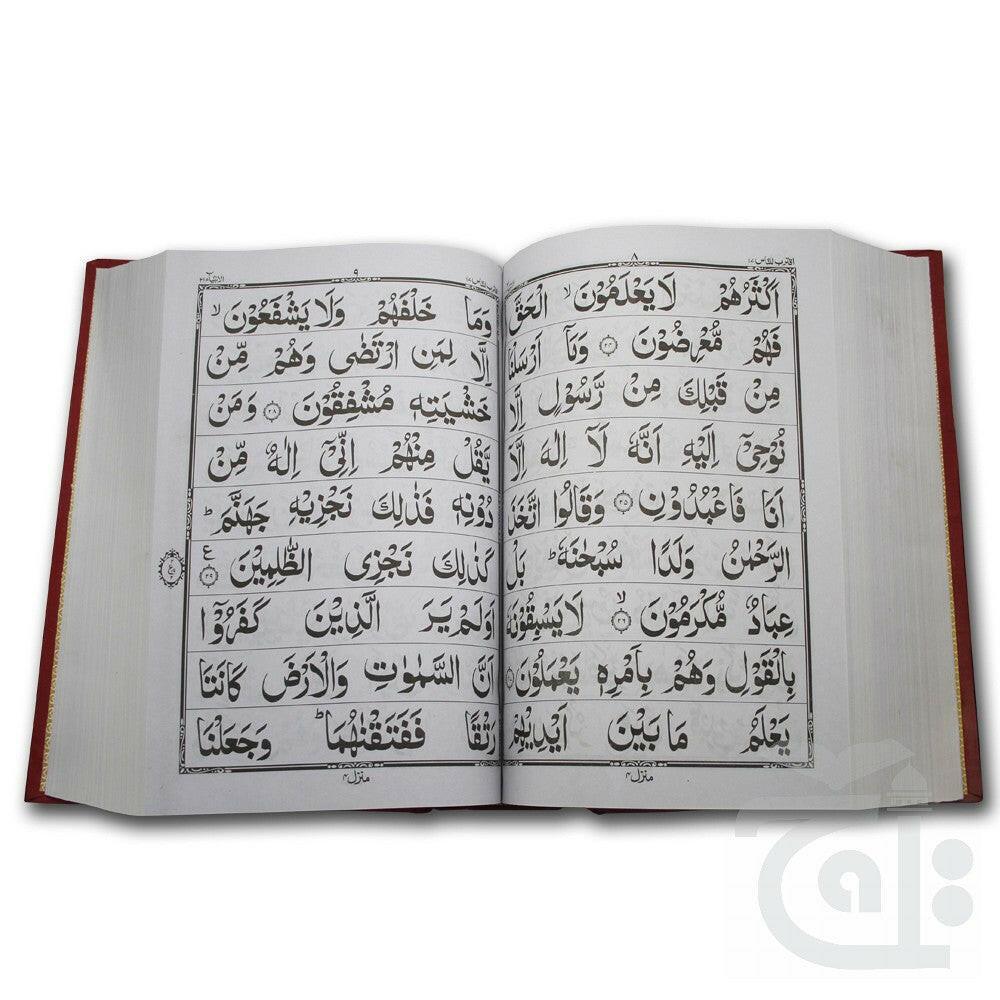 اقترب للناس ١٧
٨
اَكْثَرُهُمْ لَا يَعْلَمُوْنَ ۙ الْحَقَّ
فَهُمْ مُّعْرِضُوْنَ ﴿۲۴﴾ وَمَاۤ اَرْسَلْنَا
مِنْ قَبْلِكَ مِنْ رَّسُوْلٍ اِلَّا
نُوْحِيْۤ اِلَيْهِ اَنَّهٗ لَاۤ اِلٰهَ اِلَّاۤ
اَنَا فَاعْبُدُوْنِ ﴿۲۵﴾ وَقَالُوا اتَّخَذَ
الرَّحْمٰنُ وَلَدًا سُبْحٰنَهٗ ؕ بَلْ
عِبَادٌ مُّكْرَمُوْنَ ۙ﴿۲۶﴾ لَا يَسْبِقُوْنَهٗ
بِالْقَوْلِ وَهُمْ بِاَمْرِهٖ يَعْمَلُوْنَ ﴿۲۷﴾
يَعْلَمُ مَا بَيْنَ اَيْدِيْهِمْ
منزل ۴
٩
الانبیآء ٢١
وَمَا خَلْفَهُمْ وَلَا يَشْفَعُوْنَ ۙ
اِلَّا لِمَنِ ارْتَضٰى وَهُمْ مِّنْ
خَشْيَتِهٖ مُشْفِقُوْنَ ﴿۲۸﴾ وَمَنْ
يَّقُلْ مِنْهُمْ اِنِّيْۤ اِلٰهٌ مِّنْ
دُوْنِهٖ فَذٰلِكَ نَجْزِيْهِ جَهَنَّمَ ؕ
كَذٰلِكَ نَجْزِى الظّٰلِمِيْنَ ﴿۲۹﴾ ع
وَلَمْ يَرَ الَّذِيْنَ كَفَرُوْۤا
اَنَّ السَّمٰوٰتِ وَالْاَرْضَ كَانَتَا
رَتْقًا فَفَتَقْنٰهُمَا ؕ وَجَعَلْنَا
منزل ۴